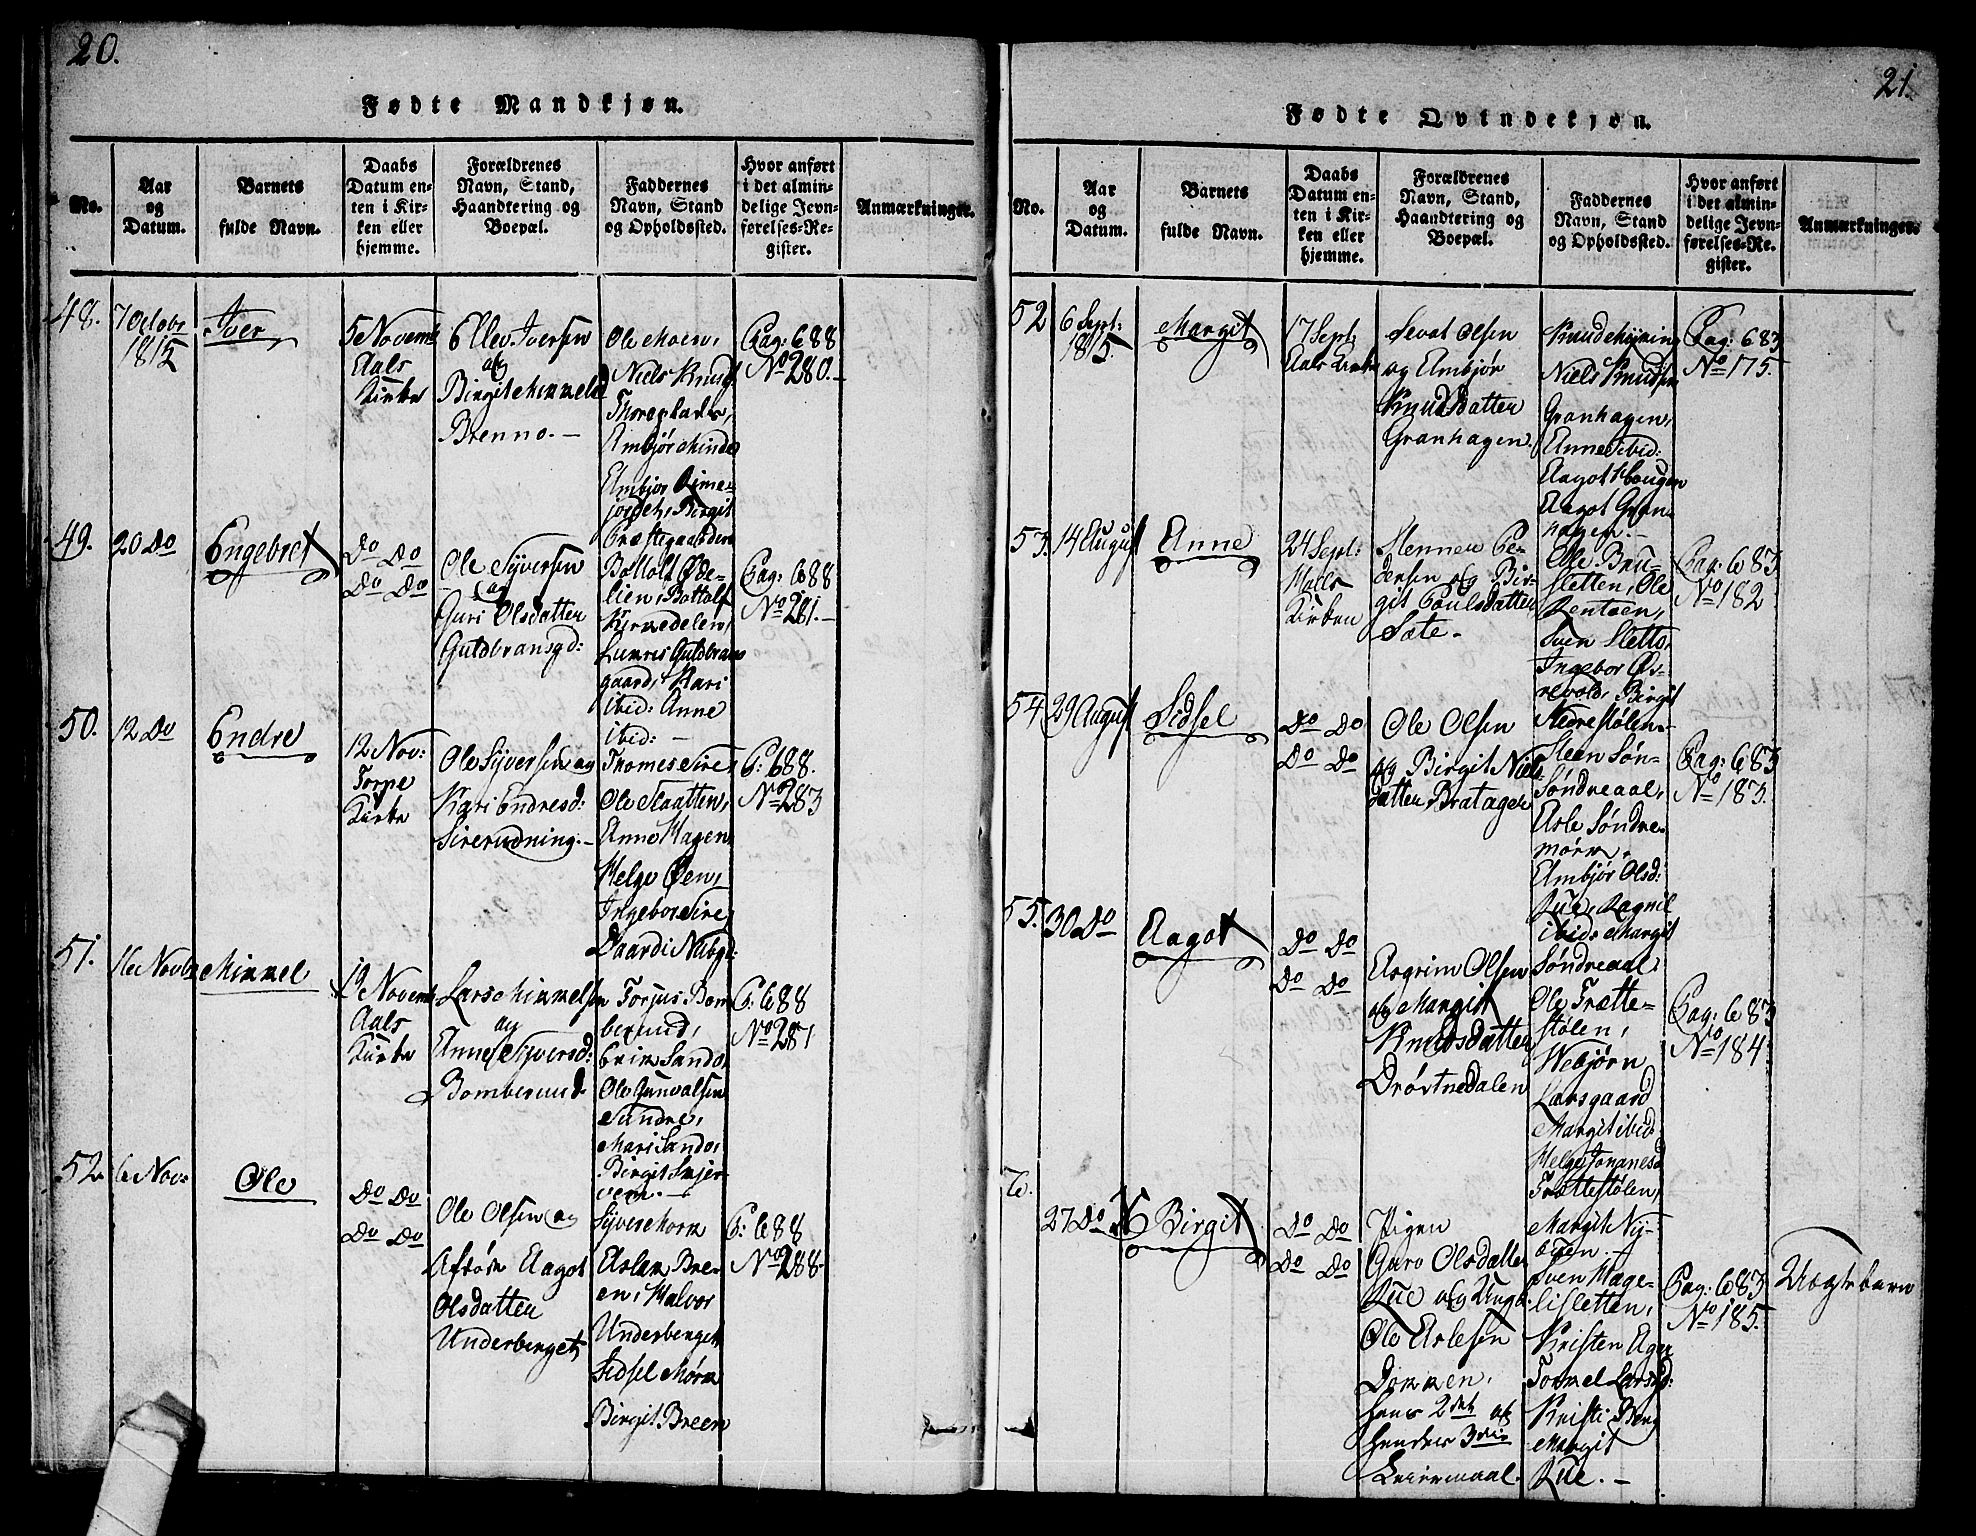 20.
Fødte Mandkjøn.
No.
Aar
og
Datum.
Barnets
fulde Navn.
Daabs
Datum en-
ten i Kir-
ken eller
hjemme.
Forældrenes
Navn, Stand,
Haandtering og
Boepæl.
Faddernes
Navn, Stand
og Opholdssted.
Hvor anført
i det almin-
delige Jevn-
førelses-Re-
gister.
Anmærkninger.
48.
7 Octobr
1815
Iver
5 Novemb
Aals
Kirke
Ellev Iversen
og
Birgit Mikkelsd
Brenno.
Ole Moen,
Niels Knuds
Thoreplads,
Ambjør Minde
Embjør
Birgit
Præstegaarden
Pag: 688
No 280.
49.
20 Do
Engebret
Do Do
Do Do
Ole Syversen
og
Guri Olsdatter
Guldbransgd:
Bottolf Øde-
lien, Bottolf
Kirkedelen,
Guldbrans
gaard, Kari
ibid: Anne
ibid:
Pag: 688
No 281.
50.
12 Do
Endre
12 Nov:
Torpe
Kirke
Ole Syversen og
Kari Endresd:
Sirerudning.
Thomes Sire,
Ole Slaatten,
Anne Hagen,
Helge Øen,
Ingebor Sire,
Daardi Nubgd:
P: 688.
No 283
51.
16 Novbr
Mikkel
19 Novemb
Aals
Kirke
Lars Mikkelsen
og
Anne Syversd:
Bomberud
Torjus Bom
berud,
Erik Sando,
Ole Gunvalsen
Sundre,
Mari Sando,
Birgit Skjer-
vem.
P: 688
No 287
52.
6 Nov:
Ole
Do Do
Do Do
Ole Olsen og
Afdøde Aagot
Olsdatter
Underberget,
Syver Mørk
Aslak Bre-
en, Halvor
Underberget,
Sidsel Mørk
Birgit Breen
P: 688
No 288
21.
Fødte Qvindekjøn.
No.
Aar
og
Datum.
Barnets
fulde Navn.
Daabs
Datum en-
ten i Kir-
ken eller
hjemme.
Forældrenes
Navn, Stand,
Haandtering og
Boepæl.
Faddernes
Navn, Stand
og Opholdssted.
Hvor anført
i det almin-
delige Jevn-
førelses-Re-
gister.
Anmærkninger.
52
6 Sept:
1815.
Margit
17 Sept:
Aals Kirke
Sevat Olsen
og Embjør
Knudsdatter
Granhagen.
Knud
Niels Knudsen
Granhagen,
Anne ibid:
Aagot Hougen
Aagot Gran-
hagen.
Pag: 683
No 175.
53.
14 August
Anne
24 Sept:
Hols
Kirken
Henneu Pe-
dersen og Bir-
git Poulsdatter
Sate.
Ole Bru-
sletten, Ole
Rentsen,
Sven Sletto,
Ingebor Ør-
revold, Birgit
Nedrestølen
Pag: 683
No 182
54
29 August
Sidsel
Do Do
Do Do
Ole Olsen
og Birgit Niels
datter Bratager
Steen Søn-
Søndreaal,
Asle Søndre-
mørk,
Embjør Olsd:
Rue, Ragnil
ibid: Margit
Søndreaal
Pag: 683
No 183.
55.
30 Do
Aagot
Do Do
Do Do
Asgrim Olsen
og Margit
Knudsdatter
Drøstnedalen
Ole Trætte-
stølen,
Webjørn
Larsgaard
Margit ibid
Helge Jonanesd
Trættestølen,
Margit Ny-
Pag: 683
No 184.
27 Do
Birgit
Do Do
Do Do
Pigen
Guro Olsdatter
Rue og Ungk:
Ole Aslesen
Dokken,
hans 2det og
hendes 3die
Leiermaal.
Sven Hage-
lisletten,
Kristen
Larsd:
Kristi Berg
Margit
Rue.
Pag: 683
No 185.
Uægte barn